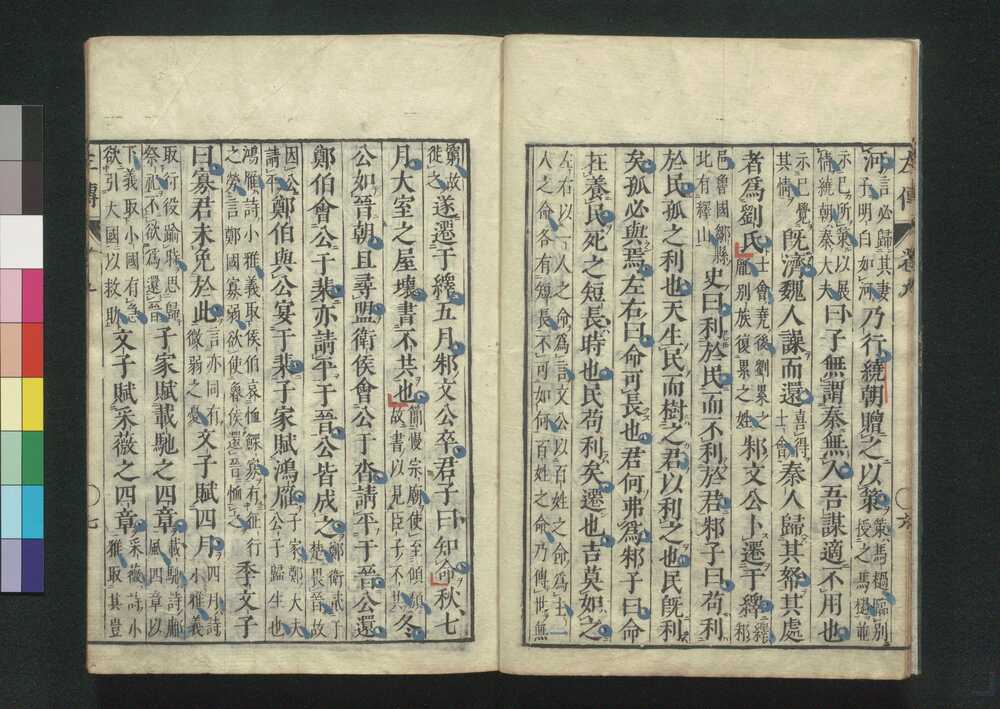 左傳 卷九 〇六
河言必歸其妻子明白如河乃行繞朝贈之以策策馬檛臨別授之馬檛並
示己所策以展情繞朝秦大夫曰子無謂秦無人吾謀適不用也
示己覺其情既濟魏人譟而還喜得士會秦人歸其帑其處
者爲劉氏士會堯後劉累之胤別族復累之姓邾文公卜遷于繹繹邾
邑魯國鄒縣北有繹山史曰利於民而不利於君邾子曰苟利
於民孤之利也天生民而樹之君以利之也民既利
矣孤必與焉左右曰命可長也君何弗爲邾子曰命
在養民死之短長時也民苟利矣遷也吉莫如之
左右以一人之命爲言文公以百姓之命爲主一人之命各有短長不可如何百姓之命乃傳世無
窮故徙之遂遷于繹五月邾文公卒君子曰知命秋七
月大室之屋壞書不共也簡慢宗廟使至傾頹故書以見臣子不共冬
公如晉朝且尋盟衛侯會公于沓請平于晉公還
鄭伯會公于棐亦請平于晉公皆成之鄭衛貳于楚畏晉故
因公請平鄭伯與公宴于棐子家賦鴻鴈子家鄭大夫公子歸生也
鴻雁詩小雅義取侯伯哀恤鰥寡有征行之勞言鄭國寡弱欲使魯侯還晉恤之季文子
曰寡君未免於此言亦同有微弱之憂文子賦四月四月詩小雅義
取行役踰時思歸祭祀不欲爲還晉子家賦載馳之四章載馳詩鄘風四章以
下義取小國有急欲引大國以救助文子賦采薇之四章采薇詩小雅取其豈
左傳 〇七